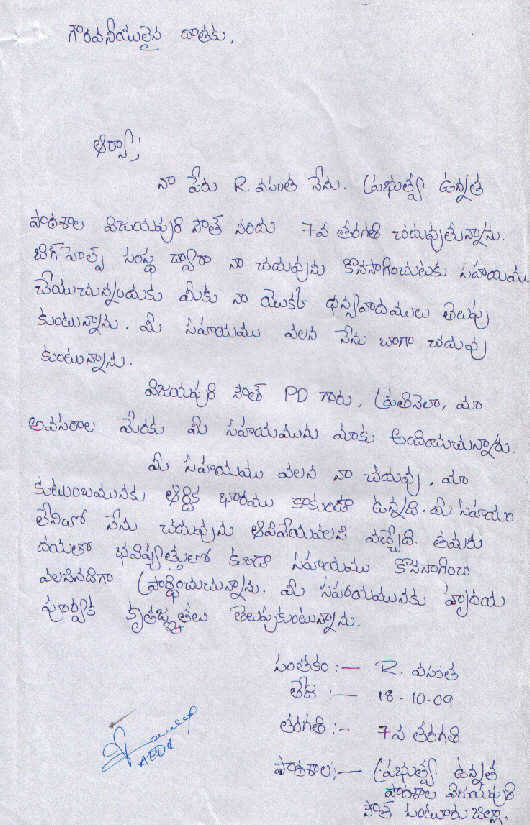 గౌరవనీయులైన దాతకు,
ఆర్యా,
నా పేరు R. వసంత నేను. ప్రభుత్వ ఉన్నత
పాఠశాల విజయపురి సౌత్ నందు 7వ తరగతి చదువుతున్నాను.
బిగ్‌హెల్ప్ సంస్థ ద్వారా నా చదువును కొనసాగించుటకు సహాయము
చేయుచున్నందుకు మీకు నా యొక్క ధన్యవాదములు తెలుపు
కుంటున్నాను. మీ సహాయము వలన నేను బాగా చదువు
కుంటున్నాను.
విజయపురి సౌత్ PD గారు, ప్రతినెలా, మా
అవసరాల మేరకు మీ సహాయమును మాకు అందించుచున్నారు.
మీ సహాయము వలన నా చదువు, మా
కుటుంబమునకు ఆర్థిక భారము కాకుండా ఉన్నది. మీ సహాయం
లేనిచో నేను చదువును ఆపివేయవలసి వచ్చేది.
దయతో భవిష్యత్తులో కూడా సహాయము కొనసాగించ
వలసినదిగా ప్రార్థించుచున్నాను. మీ సహాయమునకు హృదయ
పూర్వక కృతజ్ఞతలు తెలుపుకుంటున్నాను.
సంతకం:- R. వసంత
తేది :- 18-10-09
తరగతి :- 7వ తరగతి
పాఠశాల:- ప్రభుత్వ ఉన్నత
పాఠశాల విజయపురి
సౌత్ గుంటూరు జిల్లా.